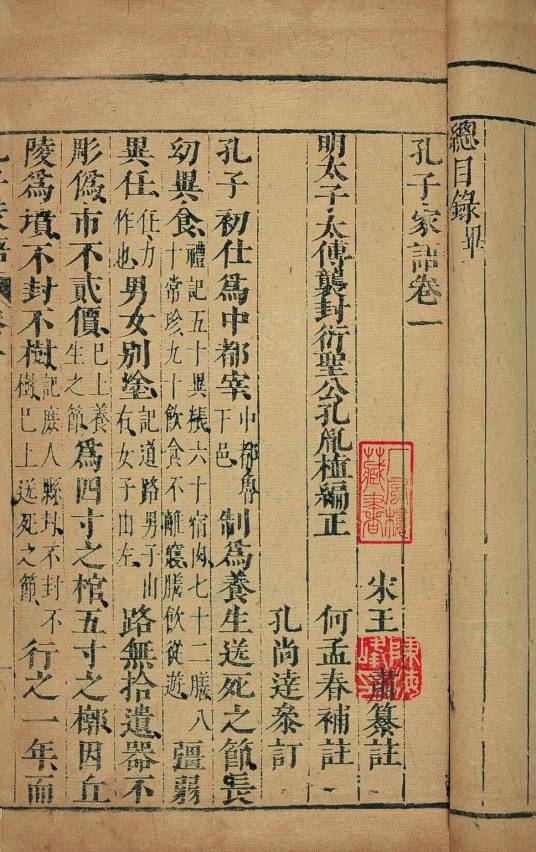 總目錄畢
孔子家語卷一
宋王肅纂註
明太子太傅襲封衍聖公孔胤植編正 何孟春補註
孔尚達叅訂
孔子初仕爲中都宰中都魯下邑制爲養生送死之節長
幼異食禮記五十異粻六十宿肉七十二膳八十常珍九十飲食不離寢膳飲從遊彊弱
異任任力作也男女別塗記道路男子由右女子由左路無拾遺器不
彫僞市不貳價巳上養生之節爲四寸之棺五寸之槨因丘
陵爲墳不封不樹記庶人縣封不封不樹巳上送死之節行之一年而